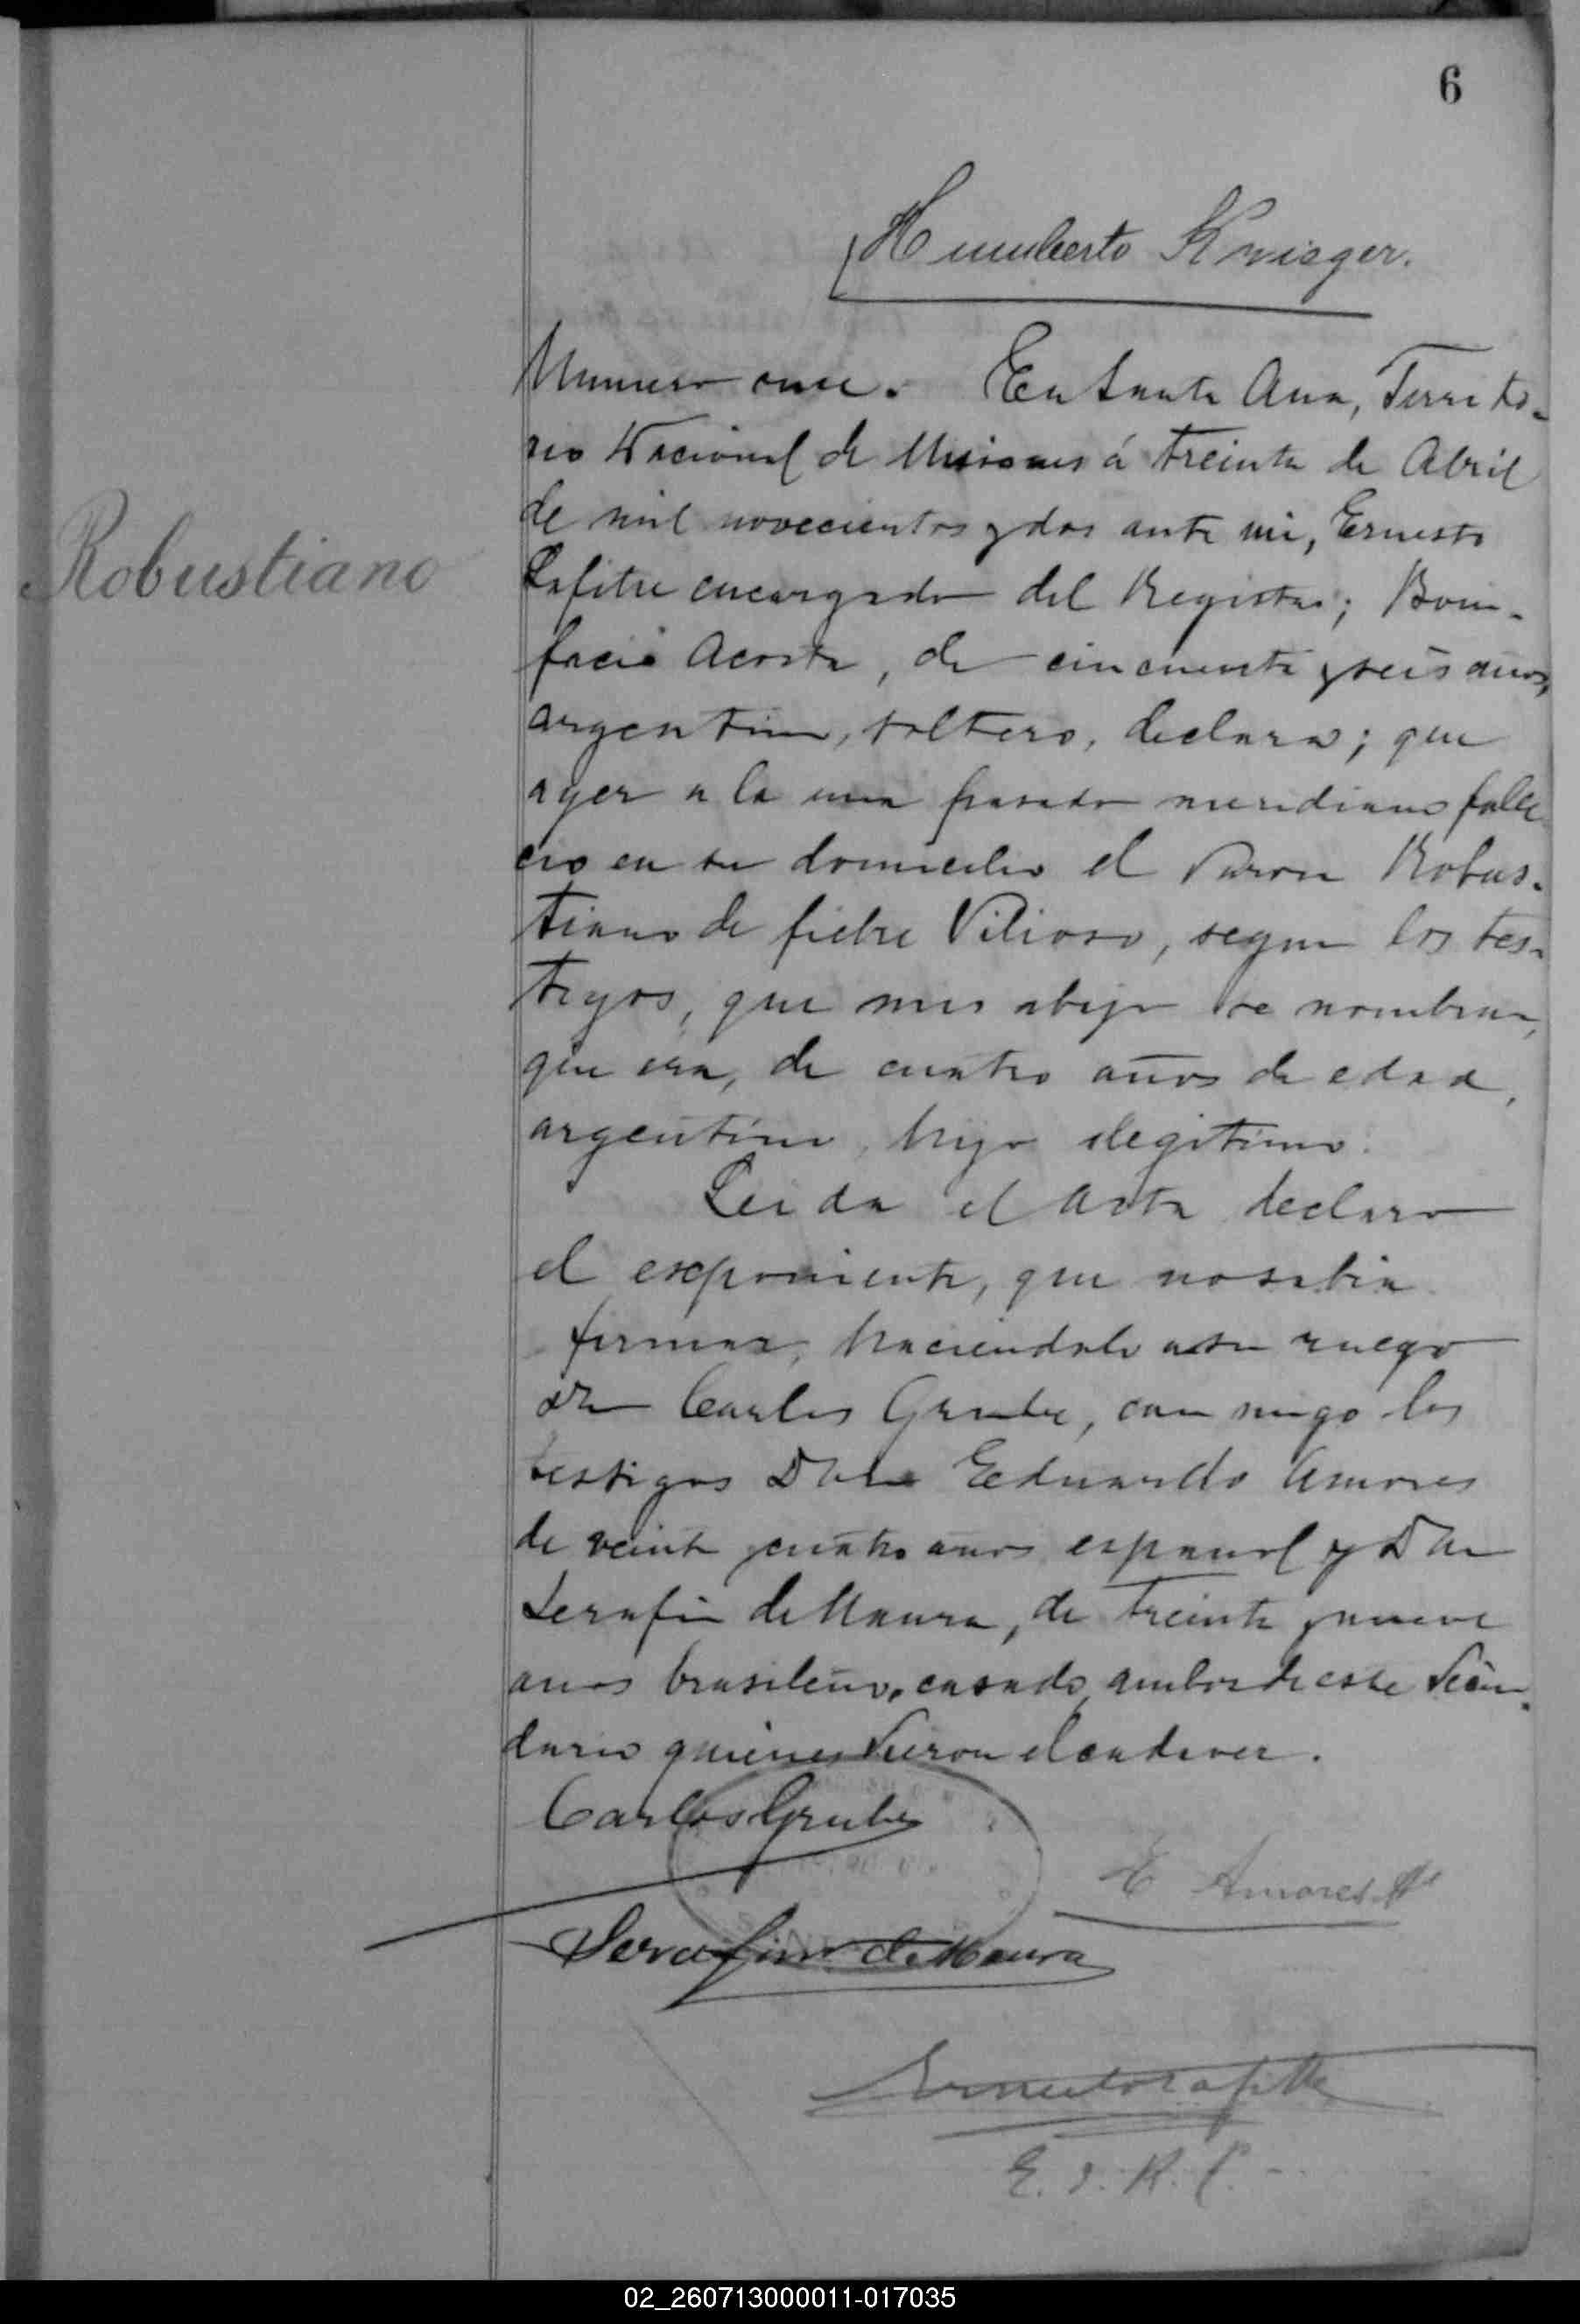 6
Humberto Krieger.
Numero once. En Santa Ana, Territo-
rio Nacional de Misiones á treinta de Abril
de mil novecientos y dos ante mi, Ernesto
Robustiano
Lafitte encargado del Registro; Boni-
facio Acosta, de cincuenta y seis años,
argentino, soltero, declara; que
ayer a la una pasado meridiano falle
cio en su domicilio el Varon Robus-
tiano de fiebre Vilioso, segun los tes-
tigos, que mas abajo se nombran,
que era, de cuatro años de edad,
argentino, hijo ilegitimo.
Leida el Acta declaro
el exponiente, que no sabia
firmar, haciendolo a su ruego
Don Carlos Grube, con migo los
testigos Don Eduardo Amores
de veinte y cuatro anos espanol y Don
Serafin de Maura, de treinta y nueve
anos brasileño, casado, ambos de este Vecin-
dario quienes vieron el cadaver.
Carlos Grube
E Amores
Serafin de Maura
Ernesto Lafitte
E. d. R. C.
02_260713000011-017035